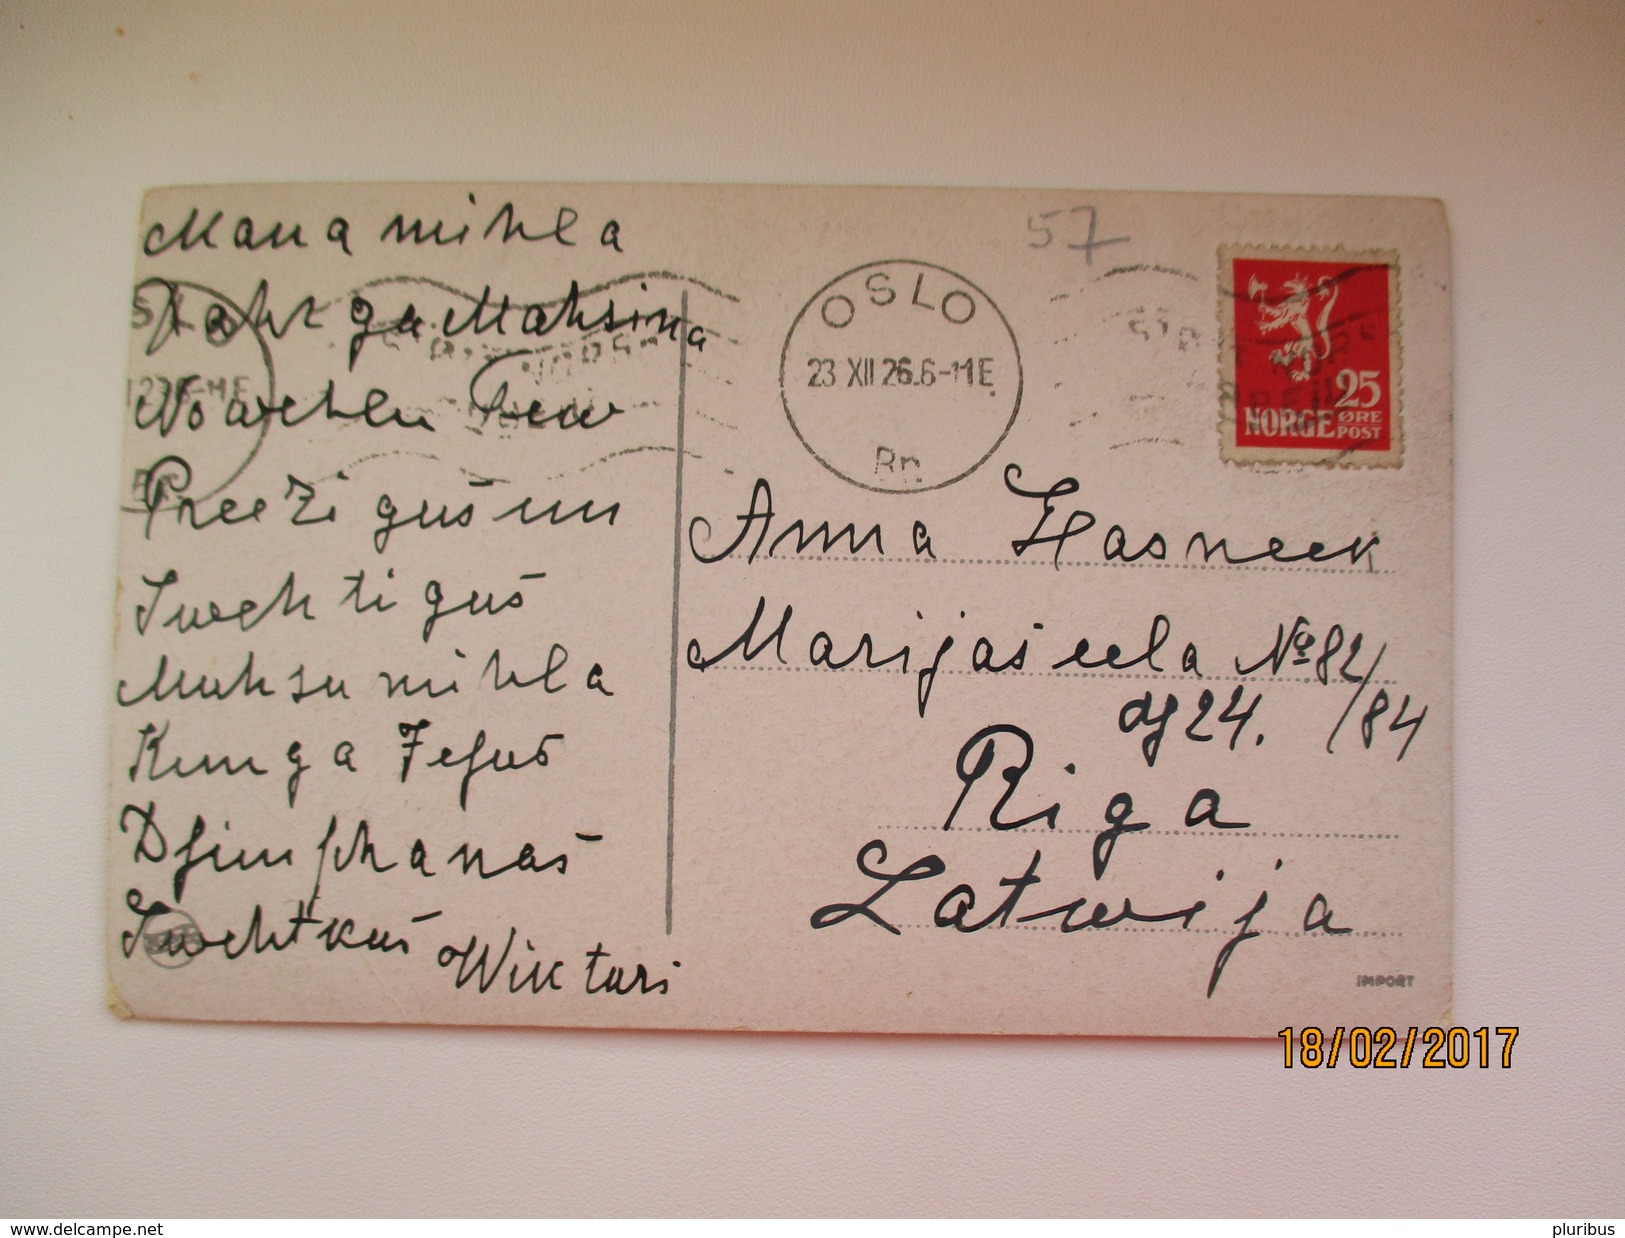 Mana mihla
Mahsina
Nowehlu Tew
Preezigus un
Swehtigus
Muhsu mihla
Kunga Jesus
Dsimschanas
Swehtkus
Wiktors
57
OSLO
23 XII 26.6-11E
Br.
25
ØRE
NORGE POST
Anna Hasneek
Marijas eela № 82/
dz 24. /84
Riga
Latwija
IMPORT
18/02/2017
www.delcampe.net
pluribus